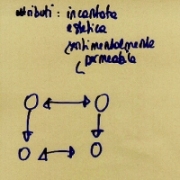 attributi: incantata
estetica
sentimentalmente
permeabile